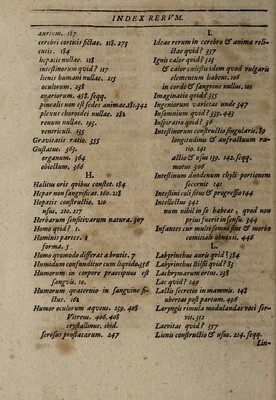 INDEX RERVM.
aurium. 187
cerebri corticis fictæ. 118. 273
cutis. 184
hepatis nullæ. 118
intestinorum quid? 117
lienis humani nullæ. 215
oculorum. 238
ovariorum. 458. seqq.
pinealis non est sedes animæ. 281. 342
plexus choroidei nullæ. 282
renum nullæ. 193.
ventriculi. 135
Gravitatis ratio. 355
Gustatus. 363.
organum. 364
obiectum. 366
H.
Halitus oris quibus constet. 184
Hepar non sanguificat. 160. 218
Hepatis constructio. 210
usus. 216, 217
Herbarum sensitivarum natura. 307
Homo quid? 1.
Hominis partes. 2
forma. 5
Homo quomodo differat a brutis. 7
Humidum confunditur cum liquido. 356
Humorum in corpore præcipuus est
sanguis. 10.
Humorum quaternio in sanguine fi-
ctus. 162
Humor oculorum aqueus. 239. 408
Vitreus. 406. 408
crystallinus. ibid.
serosus prostatarum. 247
I.
Ideæ rerum in cerebro & anima reli-
ctæ quid? 337
Ignis calor quid? 323
& calor calefactio dum quod vulgaris
in corde & sanguine nullus. 101
Imaginatio quid? 335
Ingeniorum varietas unde 347
Insomnium quid? 339. 443
Inspiratio quid? 30
Intestinorum constructio singularis. 89
longitudinis & anfractuum ra-
tio. 141
actio & usus 139. 142. seqq.
motus 306
Intestinum duodenum chyli portionem
secernit 141
Intestini cæli situs & progressio 144
Intellectus 342
num nihil in se habeat, quod non
prius fuerit in sensu. 344
Infantes cur multi somni sint & morbo
comitiali obnoxii. 446
L.
Labyrinthus auris quid? 384
Labyrinthus Bilsii quid? 53
Lachrymarum ortus. 238
Lac quid? 149
Lactis secretio in mammis. 148
ubereas post partum. 496
Laryngis rimula modulandas voci ser-
vit. 312
Laevitas quid? 357
Lienis constructio & usus. 214. seqq.
Lin-